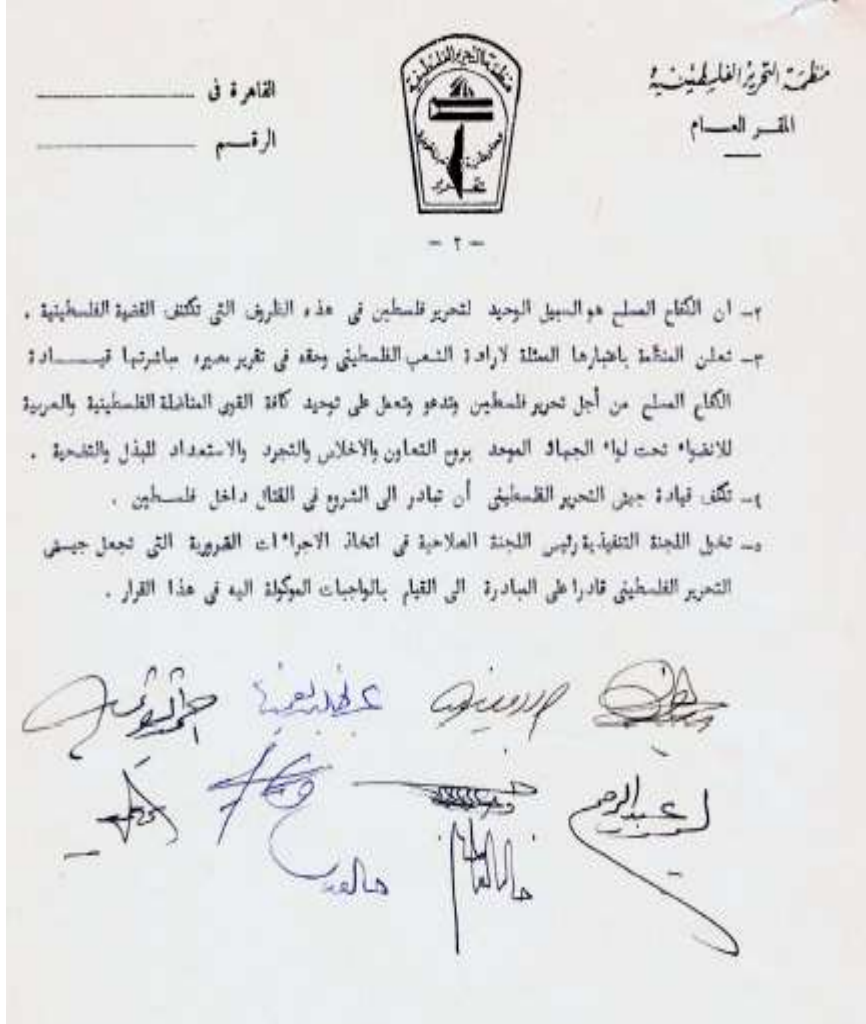 منظمة التحرير الفلسطينية
المقـر العـــام
القاهرة فى
الرقــم
منظمة التحرير الفلسطينية
— ٢ —
٢ــ ان الكفاح المسلح هو السبيل الوحيد لتحرير فلسطين فى هذه الظروف التى تكتنف القضية الفلسطينية .
٣ــ تعلن المنظمة باعتبارها الممثلة لارادة الشعب الفلسطينى وحقه فى تقرير مصيره مباشرتها قيــــادة
الكفاح المسلح من أجل تحرير فلسطين وتدعو وتعمل على توحيد كافة القوى المناضلة الفلسطينية والعربية
للانضواء تحت لواء الجهاد الموحد بروح التعاون والاخلاص والتجرد والاستعداد للبذل والتضحية .
٤ــ تكلف قيادة جيش التحرير الفلسطينى أن تبادر الى الشروع فى القتال داخل فلســطين .
٥ــ تخول اللجنة التنفيذية رئيس اللجنة الصلاحية فى اتخاذ الاجراءات الضرورية التى تجعل جيــش
التحرير الفلسطينى قادرا على المبادرة الى القيام بالواجبات الموكولة اليه فى هذا القرار .
عبد الرحمن